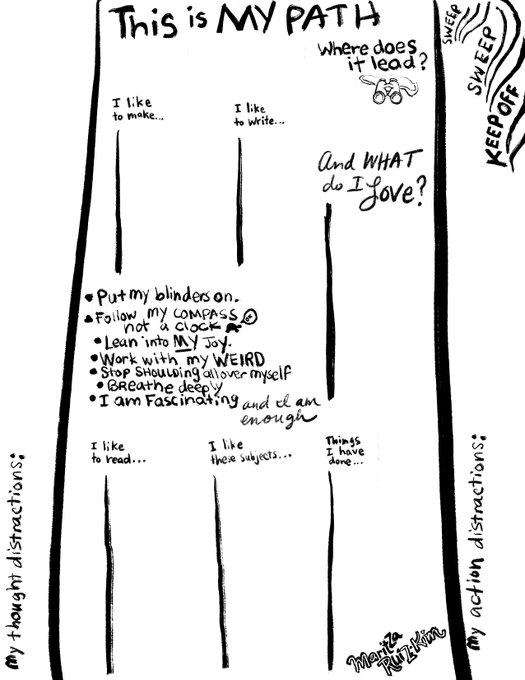 This is MY PATH
Where does
it lead?
SWEEP
SWEEP
KEEP OFF
I like
to make...
I like
to write...
And WHAT
do I Love?
• Put my blinders on.
• Follow my COMPASS
not a clock
• Lean into MY Joy.
• Work with my WEIRD
• Stop SHOULDing all over myself
• Breathe deeply
• I am Fascinating and I am
enough
I like
to read...
I like
these subjects...
Things
I have
done...
My thought distractions:
My action distractions:
Maritza
Ruiz-Kim